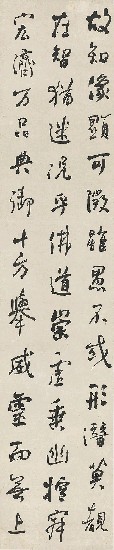 故知像顯可徵雖愚不或形潛莫覩
在智猶迷況乎佛道崇虛乘幽控寂
宏濟万品典御十方舉威靈而無上